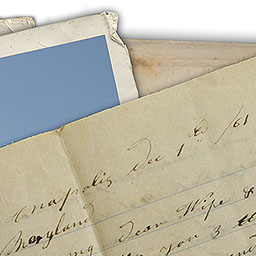 Anapolis Dec 1st /61
Maryland
my dear Wife &
you 3